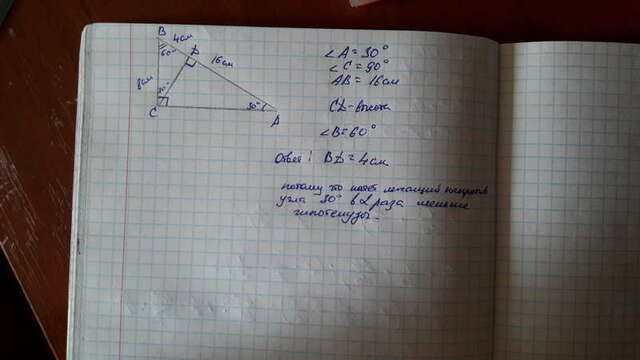 B
60°
4см
D
16см
8см
30°
C
30°
A
∠A = 30°
∠C = 90°
AB = 16см
CD - высота
∠B = 60°
Ответ: BD = 4см
потому что катет лежащий напротив
угла 30° в 2 раза меньше
гипотенузы -